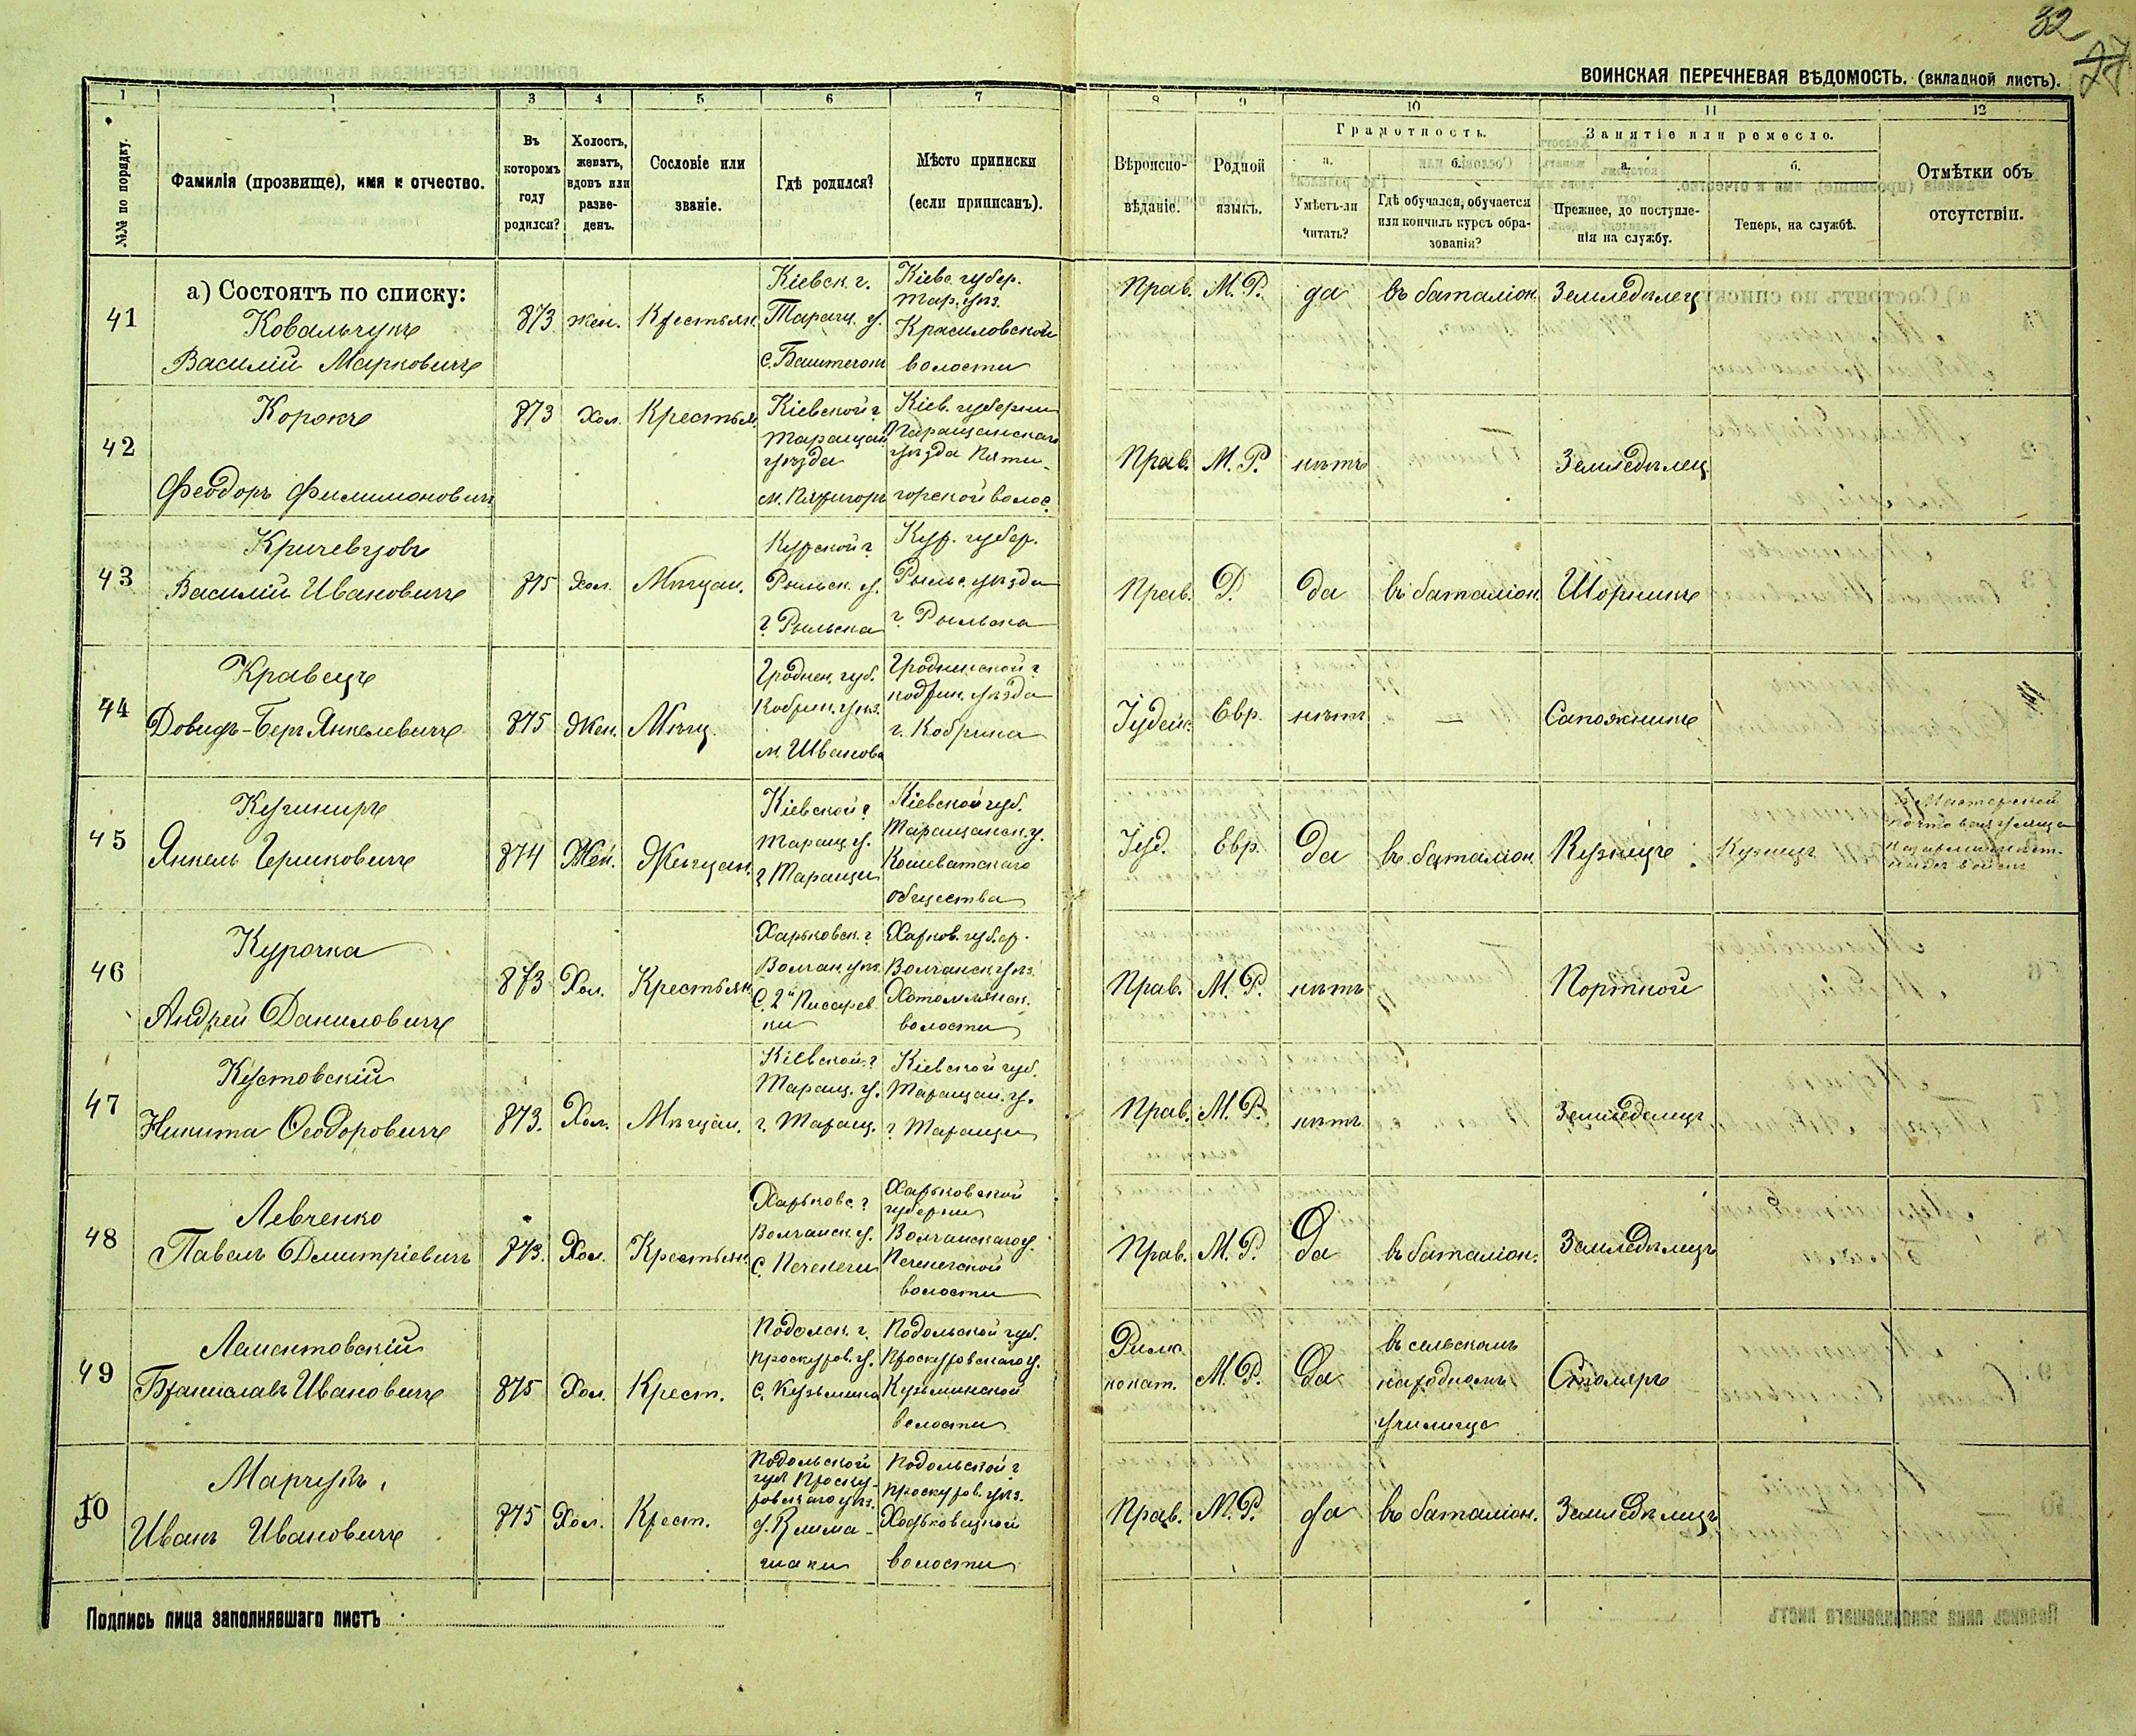 32
27
ВОИНСКАЯ ПЕРЕЧНЕВАЯ ВѢДОМОСТЬ. (вкладной листъ).
1 1 3 4 5 6 7 8 9 10 11 12
№№ по порядку.
Фамилія (прозвище), имя и отчество.
Въ
которомъ
году
родился?
Холостъ,
женатъ,
вдовъ или
разве-
денъ.
Сословіе или
званіе.
Гдѣ родился?
Мѣсто приписки
(если приписанъ).
Вѣроиспо-
вѣданіе.
Родной
языкъ.
Грамотность.
а.
Умѣетъ-ли
читать?
б.
Гдѣ обучался, обучается
или кончилъ курсъ обра-
зованія?
Занятіе или ремесло.
а.
Прежнее, до поступле-
нія на службу.
б.
Теперь, на службѣ.
Отмѣтки объ
отсутствіи.
а) Состоятъ по списку:
41
Ковальчукъ
Василій Марковичъ
873
жен.
Крестьян.
Кіевск. г.
Таращ. у.
с. Баштечки
Кіевс. губер.
Тар. уѣз.
Красиловской
волости
Прав.
М. Р.
да
въ баталіон.
Земледѣлец
42
Корокъ
Феодоръ Филимоновичъ
873
Хол.
Крестьян.
Кіевской г.
Таращан.
уѣзда
м. Пятигоръ
Кіев. губерніи
Таращанскаго
уѣзда Пяти-
горской волос.
Прав.
М. Р.
нѣтъ
Земледѣлец.
43
Кричевцовъ
Василій Ивановичъ
875
Хол.
Мѣщан.
Курской г.
Рыльск. у.
г. Рыльска
Кур. губер.
Рыльс. уѣзда
г. Рыльска
Прав.
Р.
да
въ баталіон.
Шорникъ
44
Кравецъ
Довидъ-Беръ Янкелевичъ
875
Жен.
Мѣщ.
Гроднен. губ.
Кобрин. уѣз.
м. Иванова
Гродненской г.
Кобрин. уѣзда
г. Кобрина
Іудейс.
Евр.
нѣтъ
—
Сапожникъ
45
Кушниръ
Янкель Гершковичъ
874
Жен.
Мѣщан.
Кіевской г.
Таращ. у.
г. Таращи
Кіевской губ.
Таращанск. у.
Кошеватскаго
общества
Іуд.
Евр.
Да
въ баталіон.
Кузнецъ
Кузнецъ
46
Курочка
Андрей Даниловичъ
873
Хол.
Крестьян.
Харьковск. г.
Волчан. уѣз.
С. 2й Писарев
ки
Харков. губер.
Волчанск. уѣз.
Хотомлянск.
волости
Прав.
М. Р.
нѣтъ
Портной
47
Кустовскій
Никита Ѳеодоровичъ
873.
Хол.
Мѣщан.
Кіевской г.
Таращ. у.
г. Таращ.
Кіевской губ.
Таращан. у.
г. Таращи
Прав.
М. Р.
нѣтъ
Земледелецъ
48
Левченко
Павелъ Дмитріевичъ
873.
Хол.
Крестьян.
Харьковс. г.
Волчанск. у.
С. Печенеги
Харьковской
губерніи
Волчанскаго у.
Печенегской
волости
Прав.
М. Р.
Да
въ баталіон.
Земледѣлецъ
49
Лементовскій
Брониславъ Ивановичъ
875
Хол.
Крест.
Подольск. г.
Проскуров. у.
С. Кузьмина
Подольской губ.
Проскуровскаго у.
Кузьминской
волости
Римк.
кокат.
М. Р.
Да
въ сельскомъ
народномъ
училище
Столяръ
50
Марчукъ
Иванъ Ивановичъ
875
Хол.
Крест.
Подольской
губ Проску-
ровскаго уѣз.
д. Клима-
шаки
Подольской г.
Проскуров. уѣз.
волости
Прав.
М. Р.
да
въ баталіон.
Земледѣлецъ
Подпись лица заполнявшаго листъ